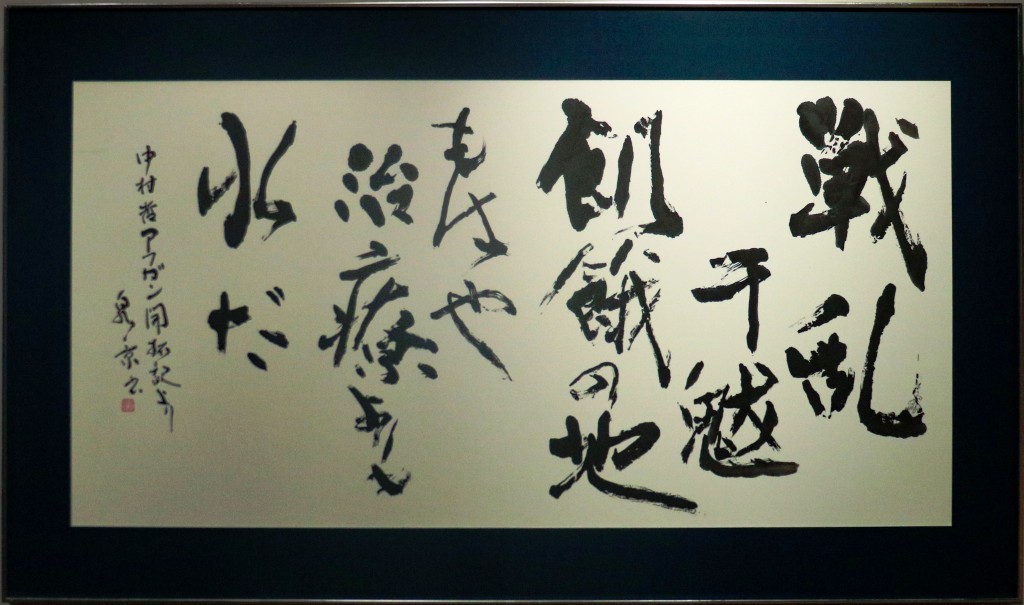 戦乱
干魃
飢餓の地
もはや
治療よりも
水だ
中村哲アフガン開拓記より